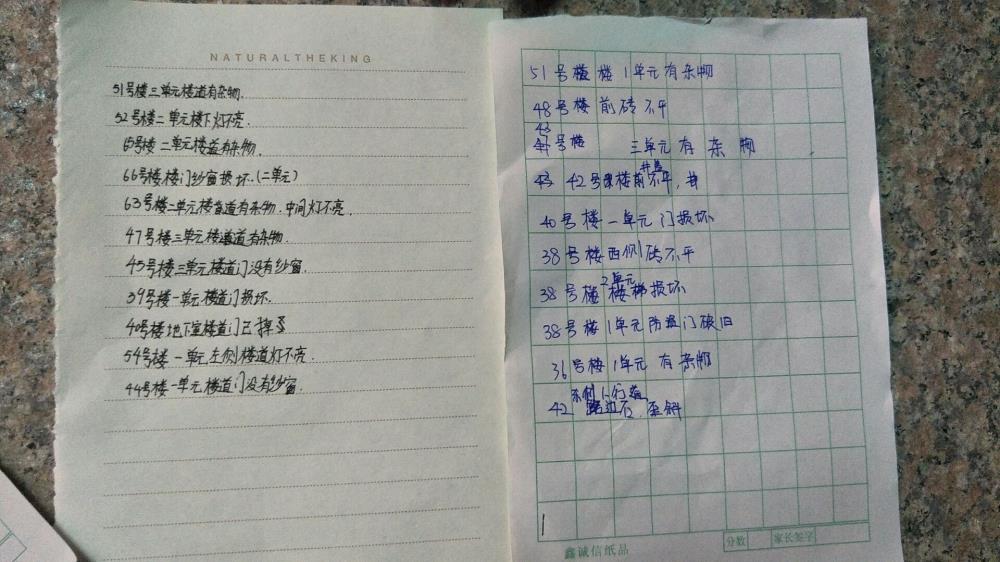 NATURALTHEKING
51号楼三单元楼道有杂物.
52号楼二单元楼下灯不亮.
号楼 二单元楼道有杂物.
66号楼楼门纱窗损坏.(二单元)
63号楼二单元楼道有杂物.中间灯不亮.
47号楼三单元楼道有杂物.
45号楼三单元楼道门没有纱窗.
39号楼一单元楼道门损坏.
40号楼地下室楼道门已掉
54号楼 一单元左侧楼道灯不亮.
44号楼一单元楼道门没有纱窗.
51号楼 1单元有杂物
48号楼前砖不平
43
号楼 三单元有杂物
井盖
42号楼前不平,
40号楼一单元门损坏
38号楼西侧砖不平
2单元
38号楼楼梯损坏
38号楼1单元防盗门破旧
36号楼1单元 有杂物
东侧人行道
42 路边石 歪斜
鑫诚信纸品
分数
家长签字